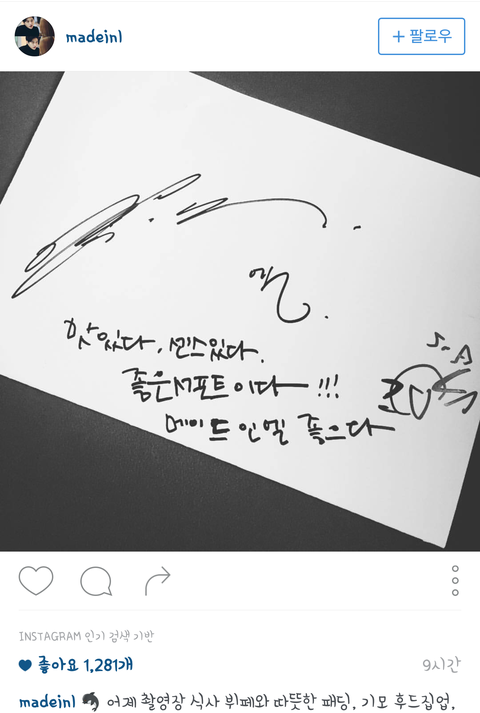 madein1
+ 팔로우
엘.
맛있다. 센스있다.
좋은서포트이다 !!!
메이드인엘 좋으다
INSTAGRAM 인기 검색 기반
좋아요 1,281개
9시간
madein1 어제 촬영장 식사 뷔페와 따뜻한 패딩, 기모 후드집업,